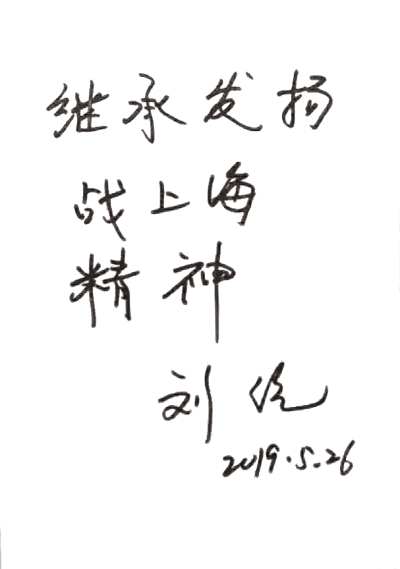 继承发扬
战上海
精神
刘
2019.5.26